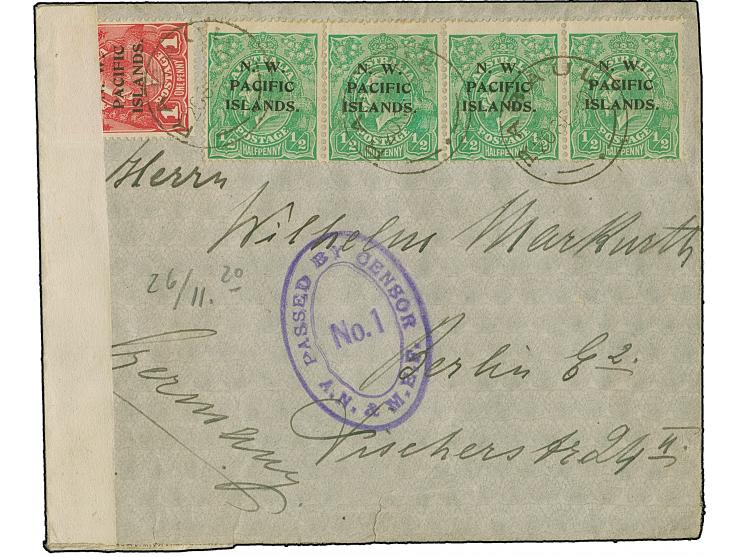 1 PACIFIC ISLANDS. 1
ONE PENNY POSTAGE
N. W. PACIFIC ISLANDS.
½ POSTAGE ½
HALFPENNY
N. W. PACIFIC ISLANDS.
½ POSTAGE ½
HALFPENNY
N. W. PACIFIC ISLANDS.
½ POSTAGE ½
HALFPENNY
N. W. PACIFIC ISLANDS.
½ POSTAGE ½
HALFPENNY
RABAUL
Herrn
Wilhelm Markurth
26/11. 20
PASSED BY CENSOR
No. 1
A.N. & M.E.F.
Berlin C 2.
Fischerstr 24 II.
Germany